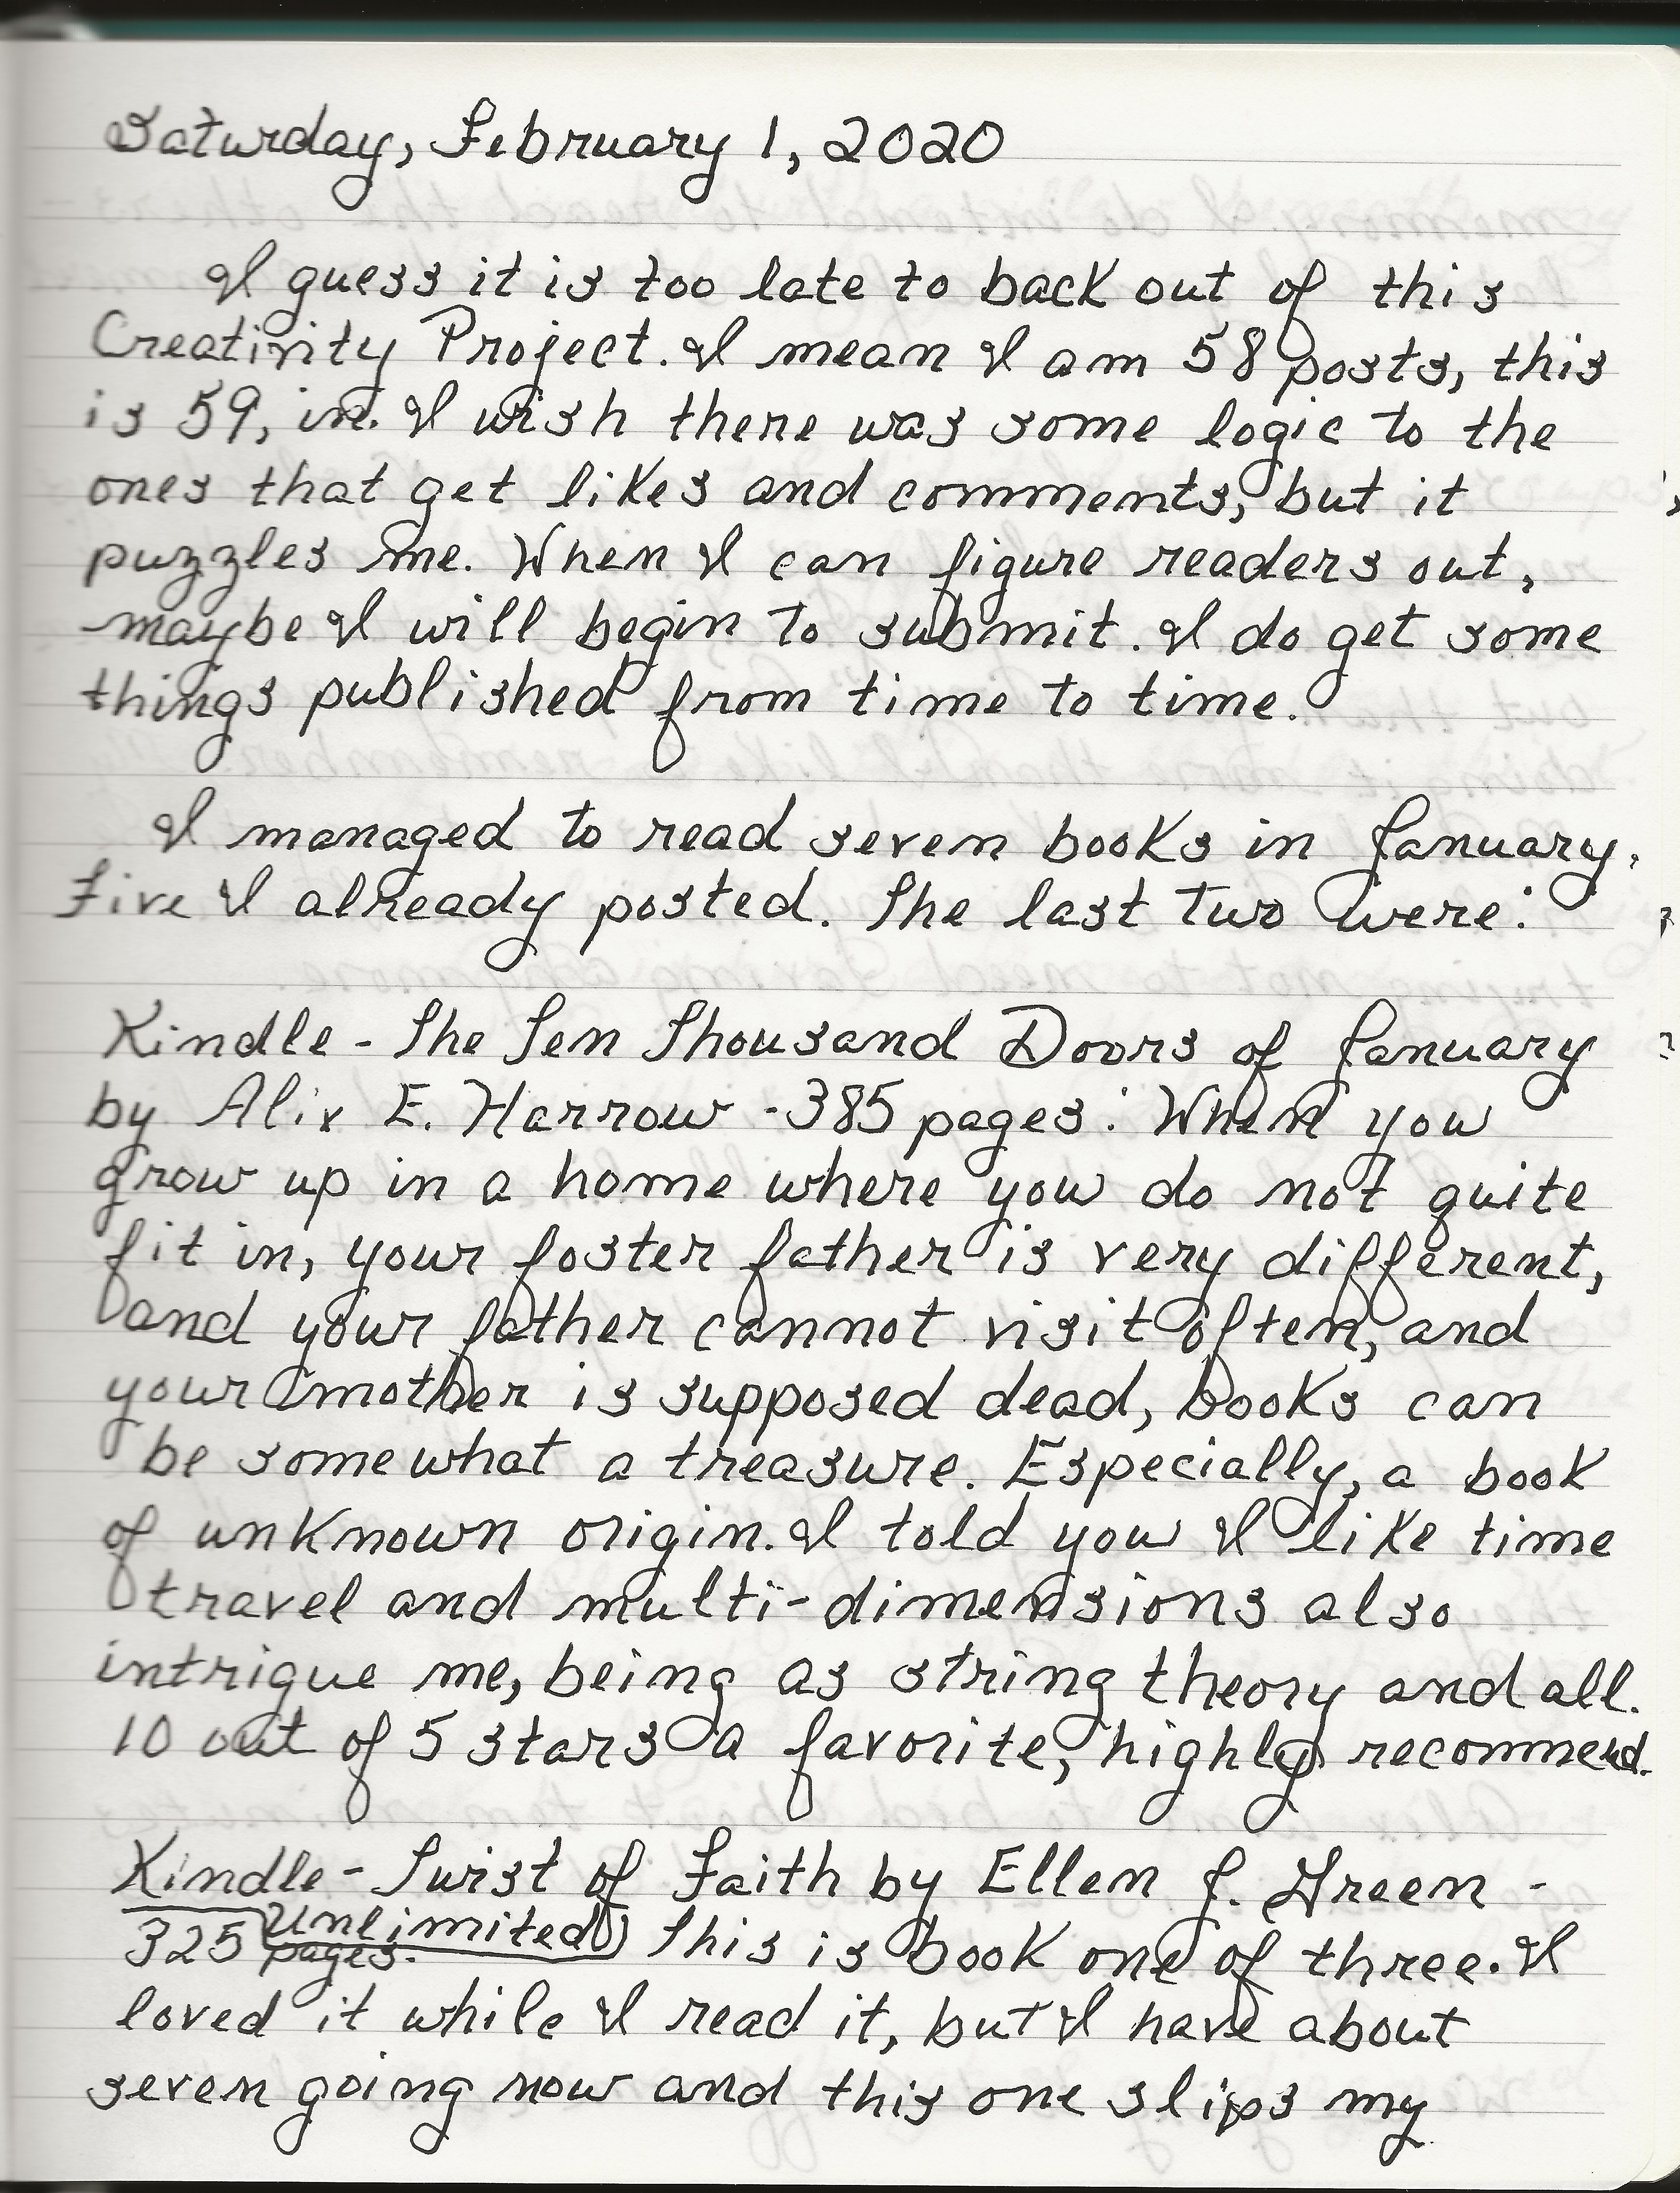 Saturday, February 1, 2020
I guess it is too late to back out of this
Creativity Project. I mean I am 58 posts, this
is 59, in. I wish there was some logic to the
ones that get likes and comments, but it
puzzles me. When I can figure readers out,
maybe I will begin to submit. I do get some
things published from time to time.
I managed to read seven books in January.
Five I already posted. The last two were:
Kindle - The Ten Thousand Doors of January
by Alix E. Harrow - 385 pages: When you
grow up in a home where you do not quite
fit in, your foster father is very different,
and your father cannot visit often, and
your mother is supposed dead, books can
be somewhat a treasure. Especially, a book
of unknown origin. I told you I like time
travel and multi-dimensions also
intrigue me, being as string theory and all.
10 out of 5 stars a favorite, highly recommend.
Kindle - Twist of Faith by Ellen J. Green -
Unlimited
325 pages. This is book one of three. I
loved it while I read it, but I have about
seven going now and this one slips my